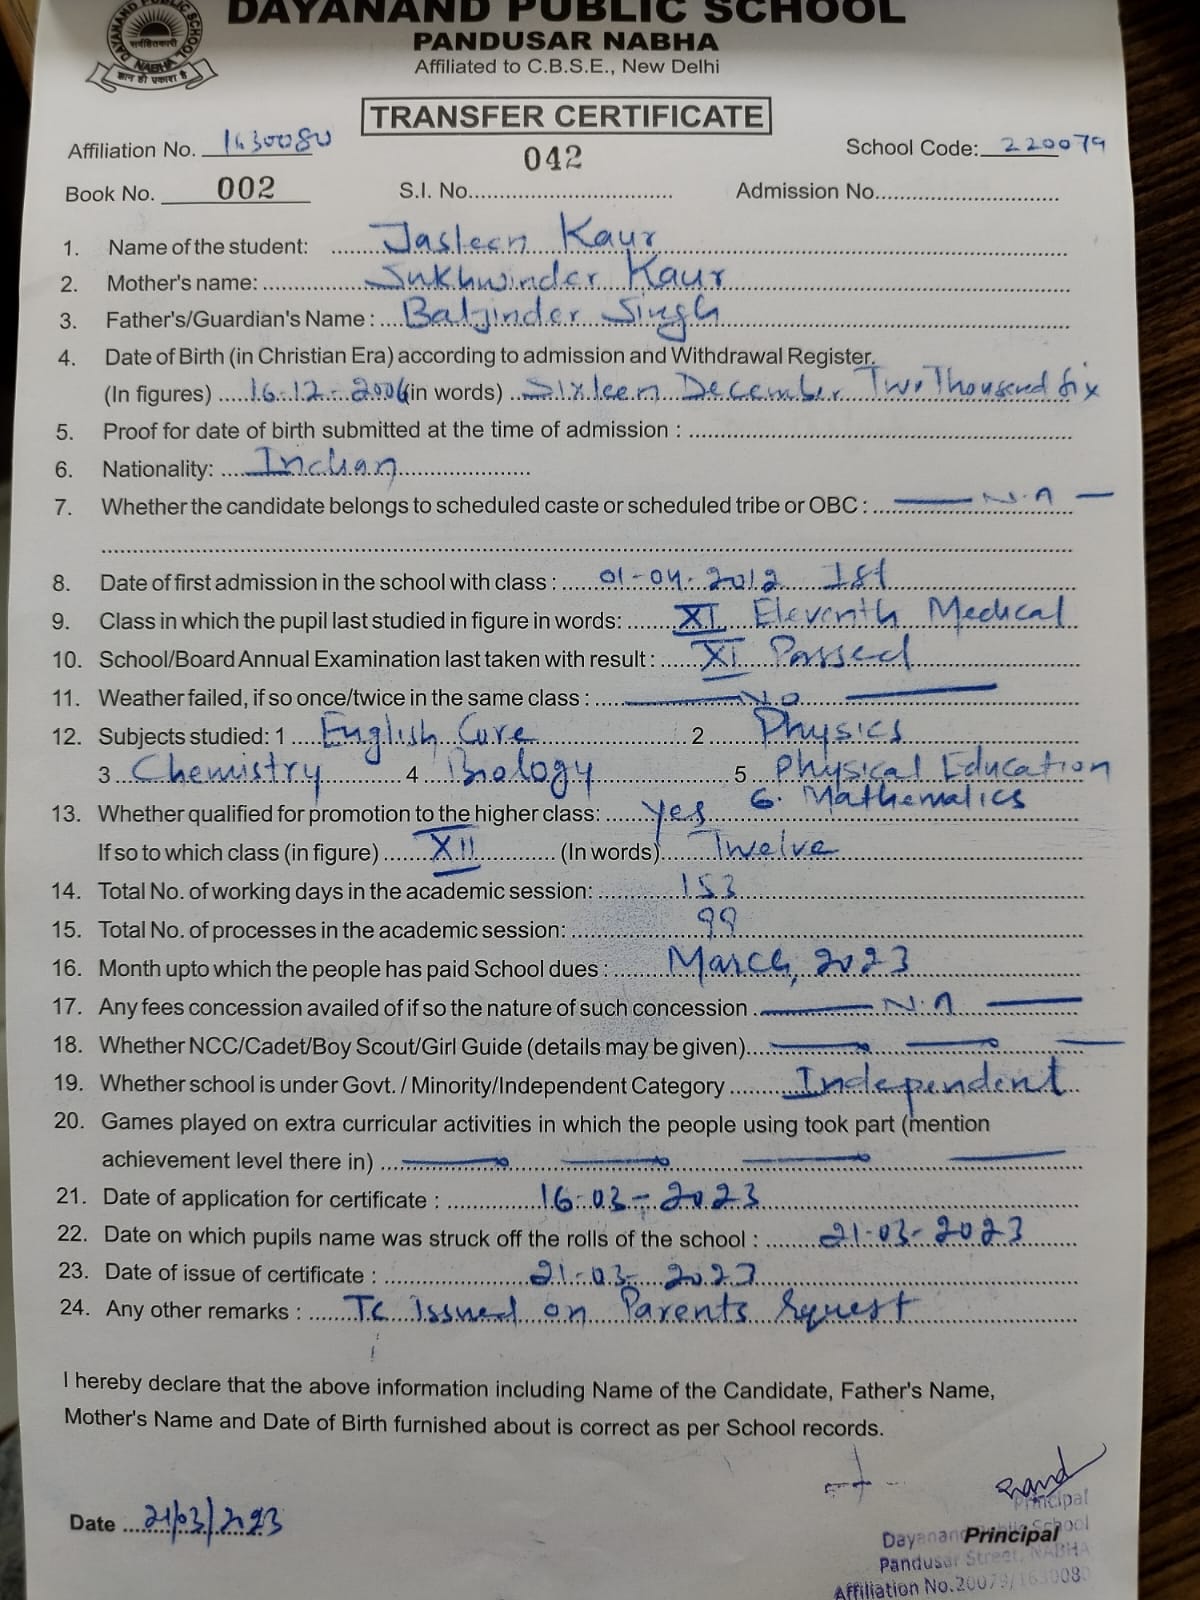 DAYANAND PUBLIC SCHOOL
PANDUSAR NABHA
Affiliated to C.B.S.E., New Delhi
DAYANAND PUBLIC SCHOOL
NABHA
ज्ञान ही प्रकाश है
TRANSFER CERTIFICATE
Affiliation No. 1630080 042 School Code: 220079
Book No. 002 S.I. No. Admission No.
1. Name of the student: Jasleen Kaur
2. Mother's name: Sukhwinder Kaur
3. Father's/Guardian's Name : Baljinder Singh
4. Date of Birth (in Christian Era) according to admission and Withdrawal Register.
(In figures) 16-12-2006 (in words) Sixteen December Two Thousand Six
5. Proof for date of birth submitted at the time of admission :
6. Nationality: Indian
7. Whether the candidate belongs to scheduled caste or scheduled tribe or OBC : N.A
8. Date of first admission in the school with class : 01-04-2012 Ist
9. Class in which the pupil last studied in figure in words: XI Eleventh Medical
10. School/Board Annual Examination last taken with result : XI Passed
11. Weather failed, if so once/twice in the same class : No
12. Subjects studied: 1 English Core 2 Physics
3 Chemistry 4 Biology 5 Physical Education
6. Mathematics
13. Whether qualified for promotion to the higher class: yes
If so to which class (in figure) XII (In words) Twelve
14. Total No. of working days in the academic session: 153
15. Total No. of processes in the academic session: 99
16. Month upto which the people has paid School dues : March, 2023
17. Any fees concession availed of if so the nature of such concession N.A
18. Whether NCC/Cadet/Boy Scout/Girl Guide (details may be given)
19. Whether school is under Govt. / Minority/Independent Category Independent
20. Games played on extra curricular activities in which the people using took part (mention
achievement level there in)
21. Date of application for certificate : 16-03-2023
22. Date on which pupils name was struck off the rolls of the school : 21-03-2023
23. Date of issue of certificate : 21-03-2023
24. Any other remarks : TC Issued on Parents request
I hereby declare that the above information including Name of the Candidate, Father's Name,
Mother's Name and Date of Birth furnished about is correct as per School records.
Date 21/03/2023
Principal
Principal
Dayanand Public School
Pandusar Street, NABHA
Affiliation No.20079/1630080